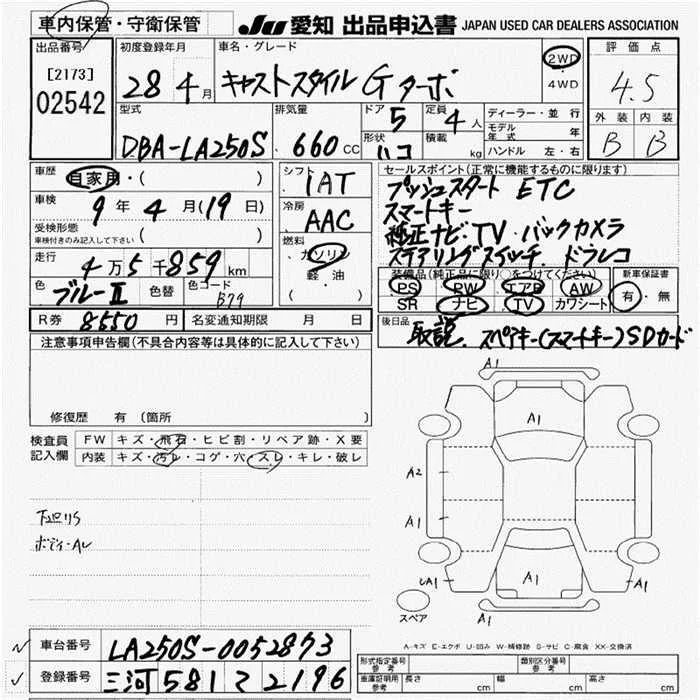 車内保管・守衛保管
JU 愛知 出品申込書 JAPAN USED CAR DEALERS ASSOCIATION
出品番号
[2173]
02542
初度登録年月
28年4月
車名・グレード
キャストスタイル Gターボ
2WD
・
4WD
評価点
4.5
外装 内装
B B
型式
DBA-LA250S
排気量
660cc
ドア 5
定員 4人
形状 ハコ
積載 kg
ディーラー・並行
モデル年式 年
ハンドル 左・右
車歴
自家用・( )
車検
9年4月(19日)
受検形態
車検付きのみ記入して下さい ( )
走行
4万5千859km
色 ブルーⅡ 色替 色コード B79
R券 8550円 名変通知期限 月 日
シフト
IAT
冷房
AAC
燃料
ガソリン
軽・油
セールスポイント(正常に機能するものに限ります)
プッシュスタート ETC
スマートキー
純正ナビ・TV・バックカメラ
ステアリングスイッチ. ドラレコ
装備品(純正品に限り○をつけてください)
PS PW エアB AW
SR ナビ TV カワシート
新車保証書
有・無
後日品
取説. スペアキー(スマートキー)SDカード
注意事項申告欄(不具合内容等は具体的に記入して下さい)
修復歴 有(箇所
検査員記入欄
FW キズ・飛石・ヒビ割・リペア跡・X要
内装 キズ・汚レ・コゲ・穴・スレ・キレ・破レ
下廻りS
ボディーAレ
A1
A1
A2
A1
A1
A1
A1
スペア
A-キズ E-エクボ U-凹み W-補修跡 S-サビ C-腐食 XX-交換済
車台番号 LA250S-0052873
登録番号 三河 581 て 2196
形式指定番号 参考
類別区分番号 参考
車庫証明用 参考
長さ cm 幅 cm 高さ cm